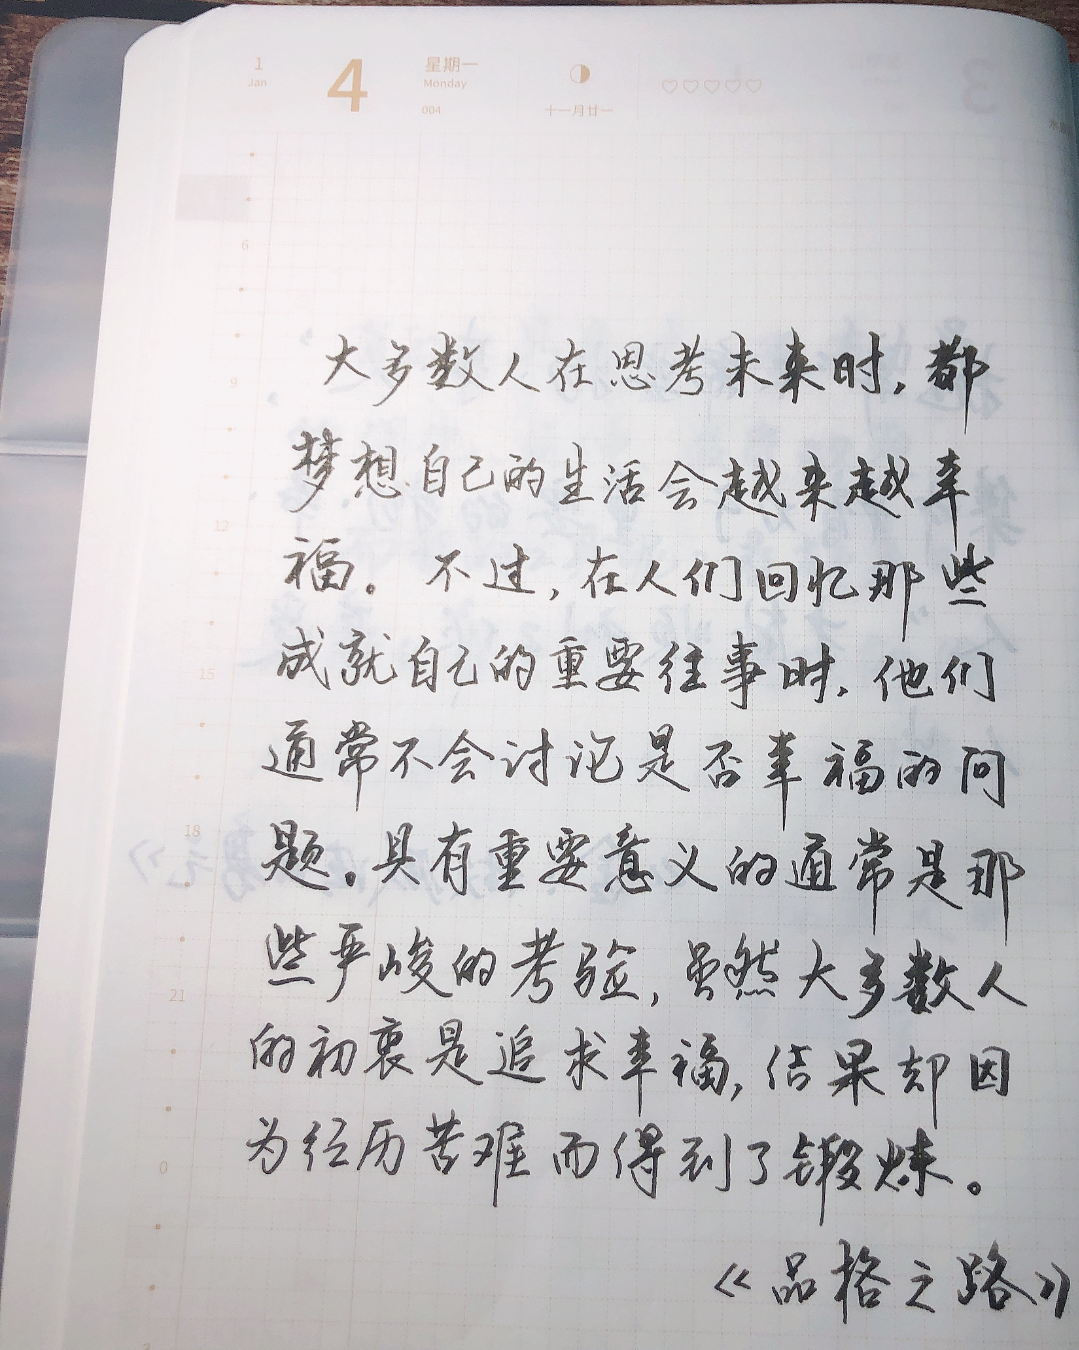 1
Jan
4
星期一
Monday
004
十一月廿一
3
6
9
12
15
18
21
0
大多数人在思考未来时,都
梦想自己的生活会越来越幸
福。不过,在人们回忆那些
成就自己的重要往事时,他们
通常不会讨论是否幸福的问
题。具有重要意义的通常是那
些严峻的考验,虽然大多数人
的初衷是追求幸福,结果却因
为经历苦难而得到了锻炼。
《品格之路》